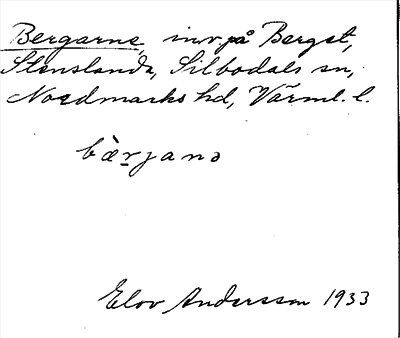 Bergarne, inv på Berget,
Stenslanda, Silbodals sn,
Nordmarks hd, Värml. l.
bærjanə
Elov Andersson 1933